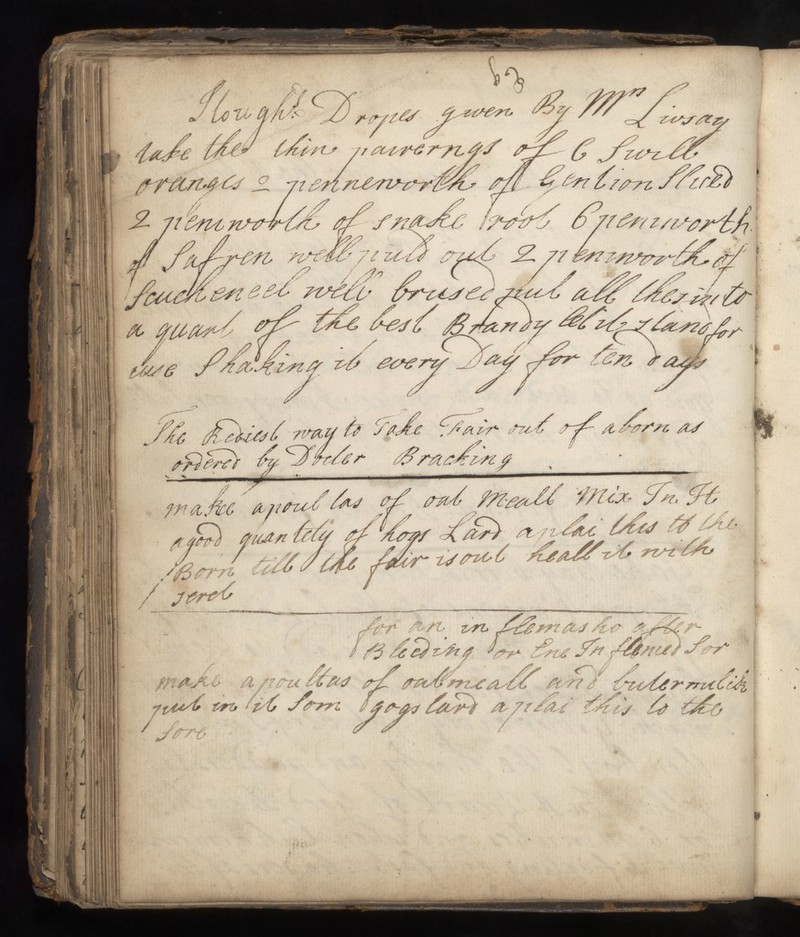 63
Stoughts Dropes given By Mrs Livsay
take the thin pairerngs of 6 Sivill
oranges 2 penneworth of Gention Sliced
2 peniworth of snake root 6 peniworth
of Safren well puld out 2 peniworth of
Scucheneel well brused put all thes into
a quart of the best Brandy let it stand for
use Shaking it every Day for ten days
The Rediest way to Take Fair out of a born as
ordered by Docter Bracking
make a poultas of oat meall Mix In It
a good quantety of hogs Lard aplai this to the
Born till the fair is out heall it with
seret
for an in flemasho after
Bleeding or Ene In flamed Sor
make a poultas of oatmeall and butermulck
put in it Som gogs lard aplai this to the
Sore